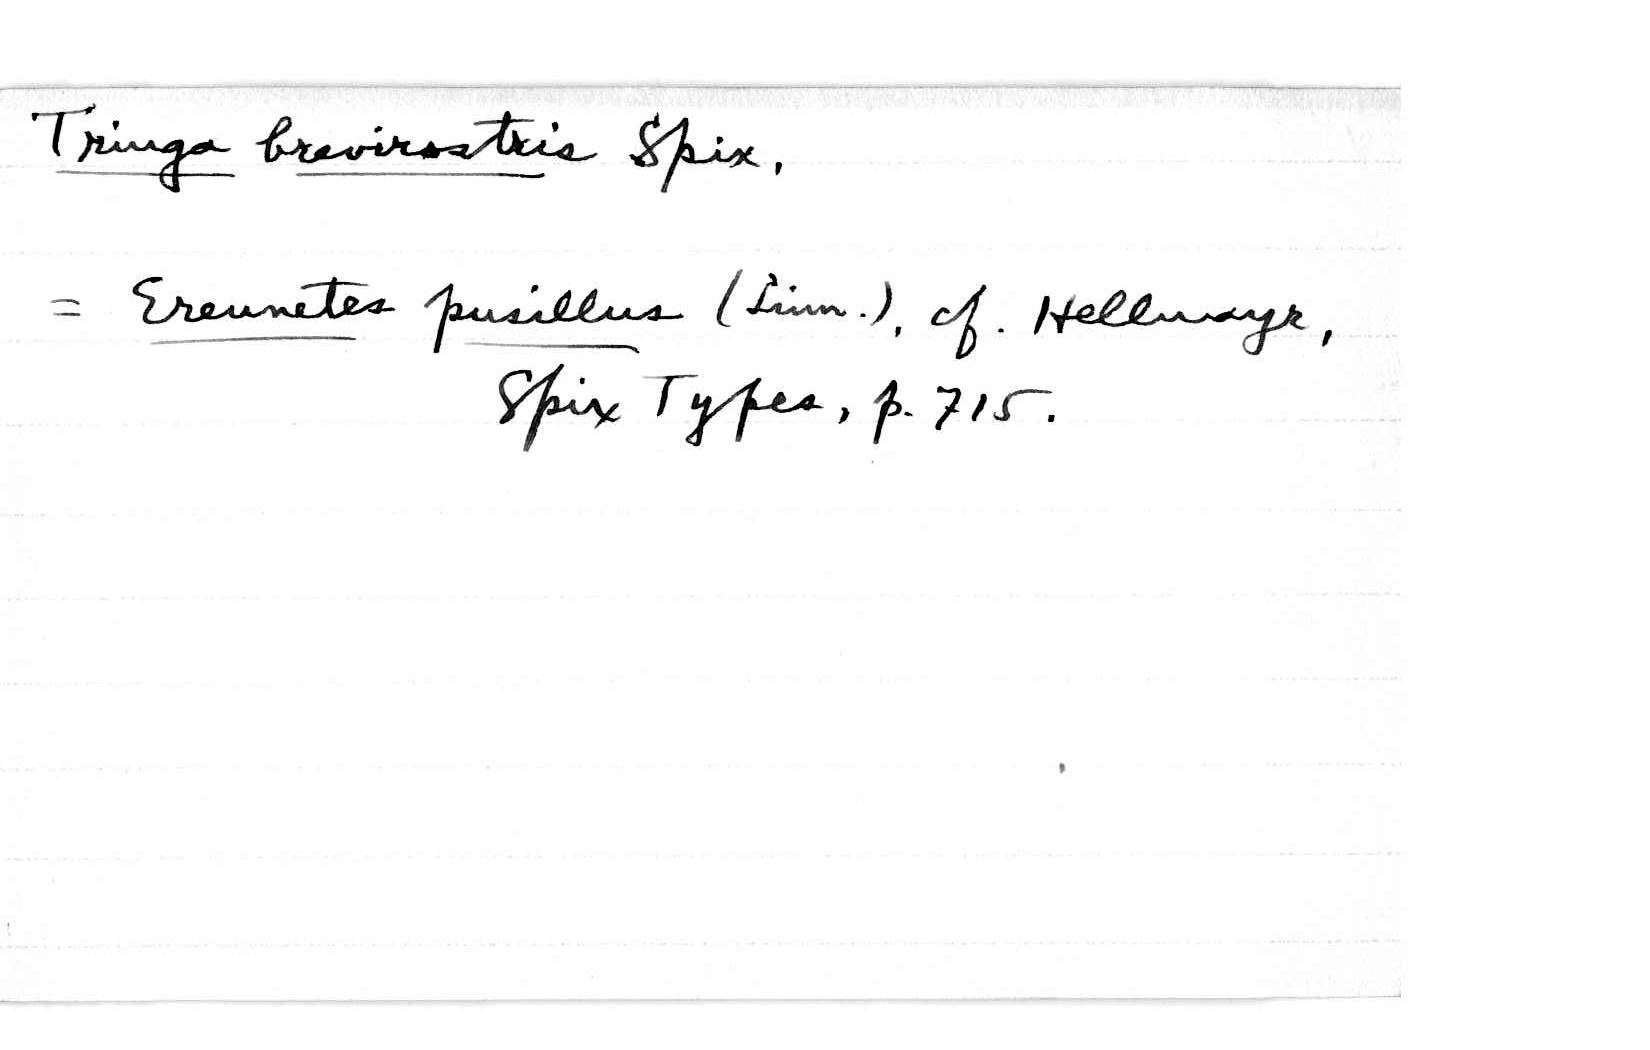 Tringa brevirostris Spix,
= Ereunetes pusillus (Linn.), cf. Hellmayr,
Spix Types, p. 715.